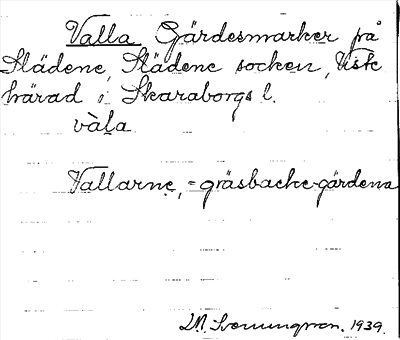 Valla Gärdesmarker på
Slädene, Slädene socken, Viste
härad i Skaraborgs l.
vàla
Vallarne, = gräsbacke-gärdena
1939.